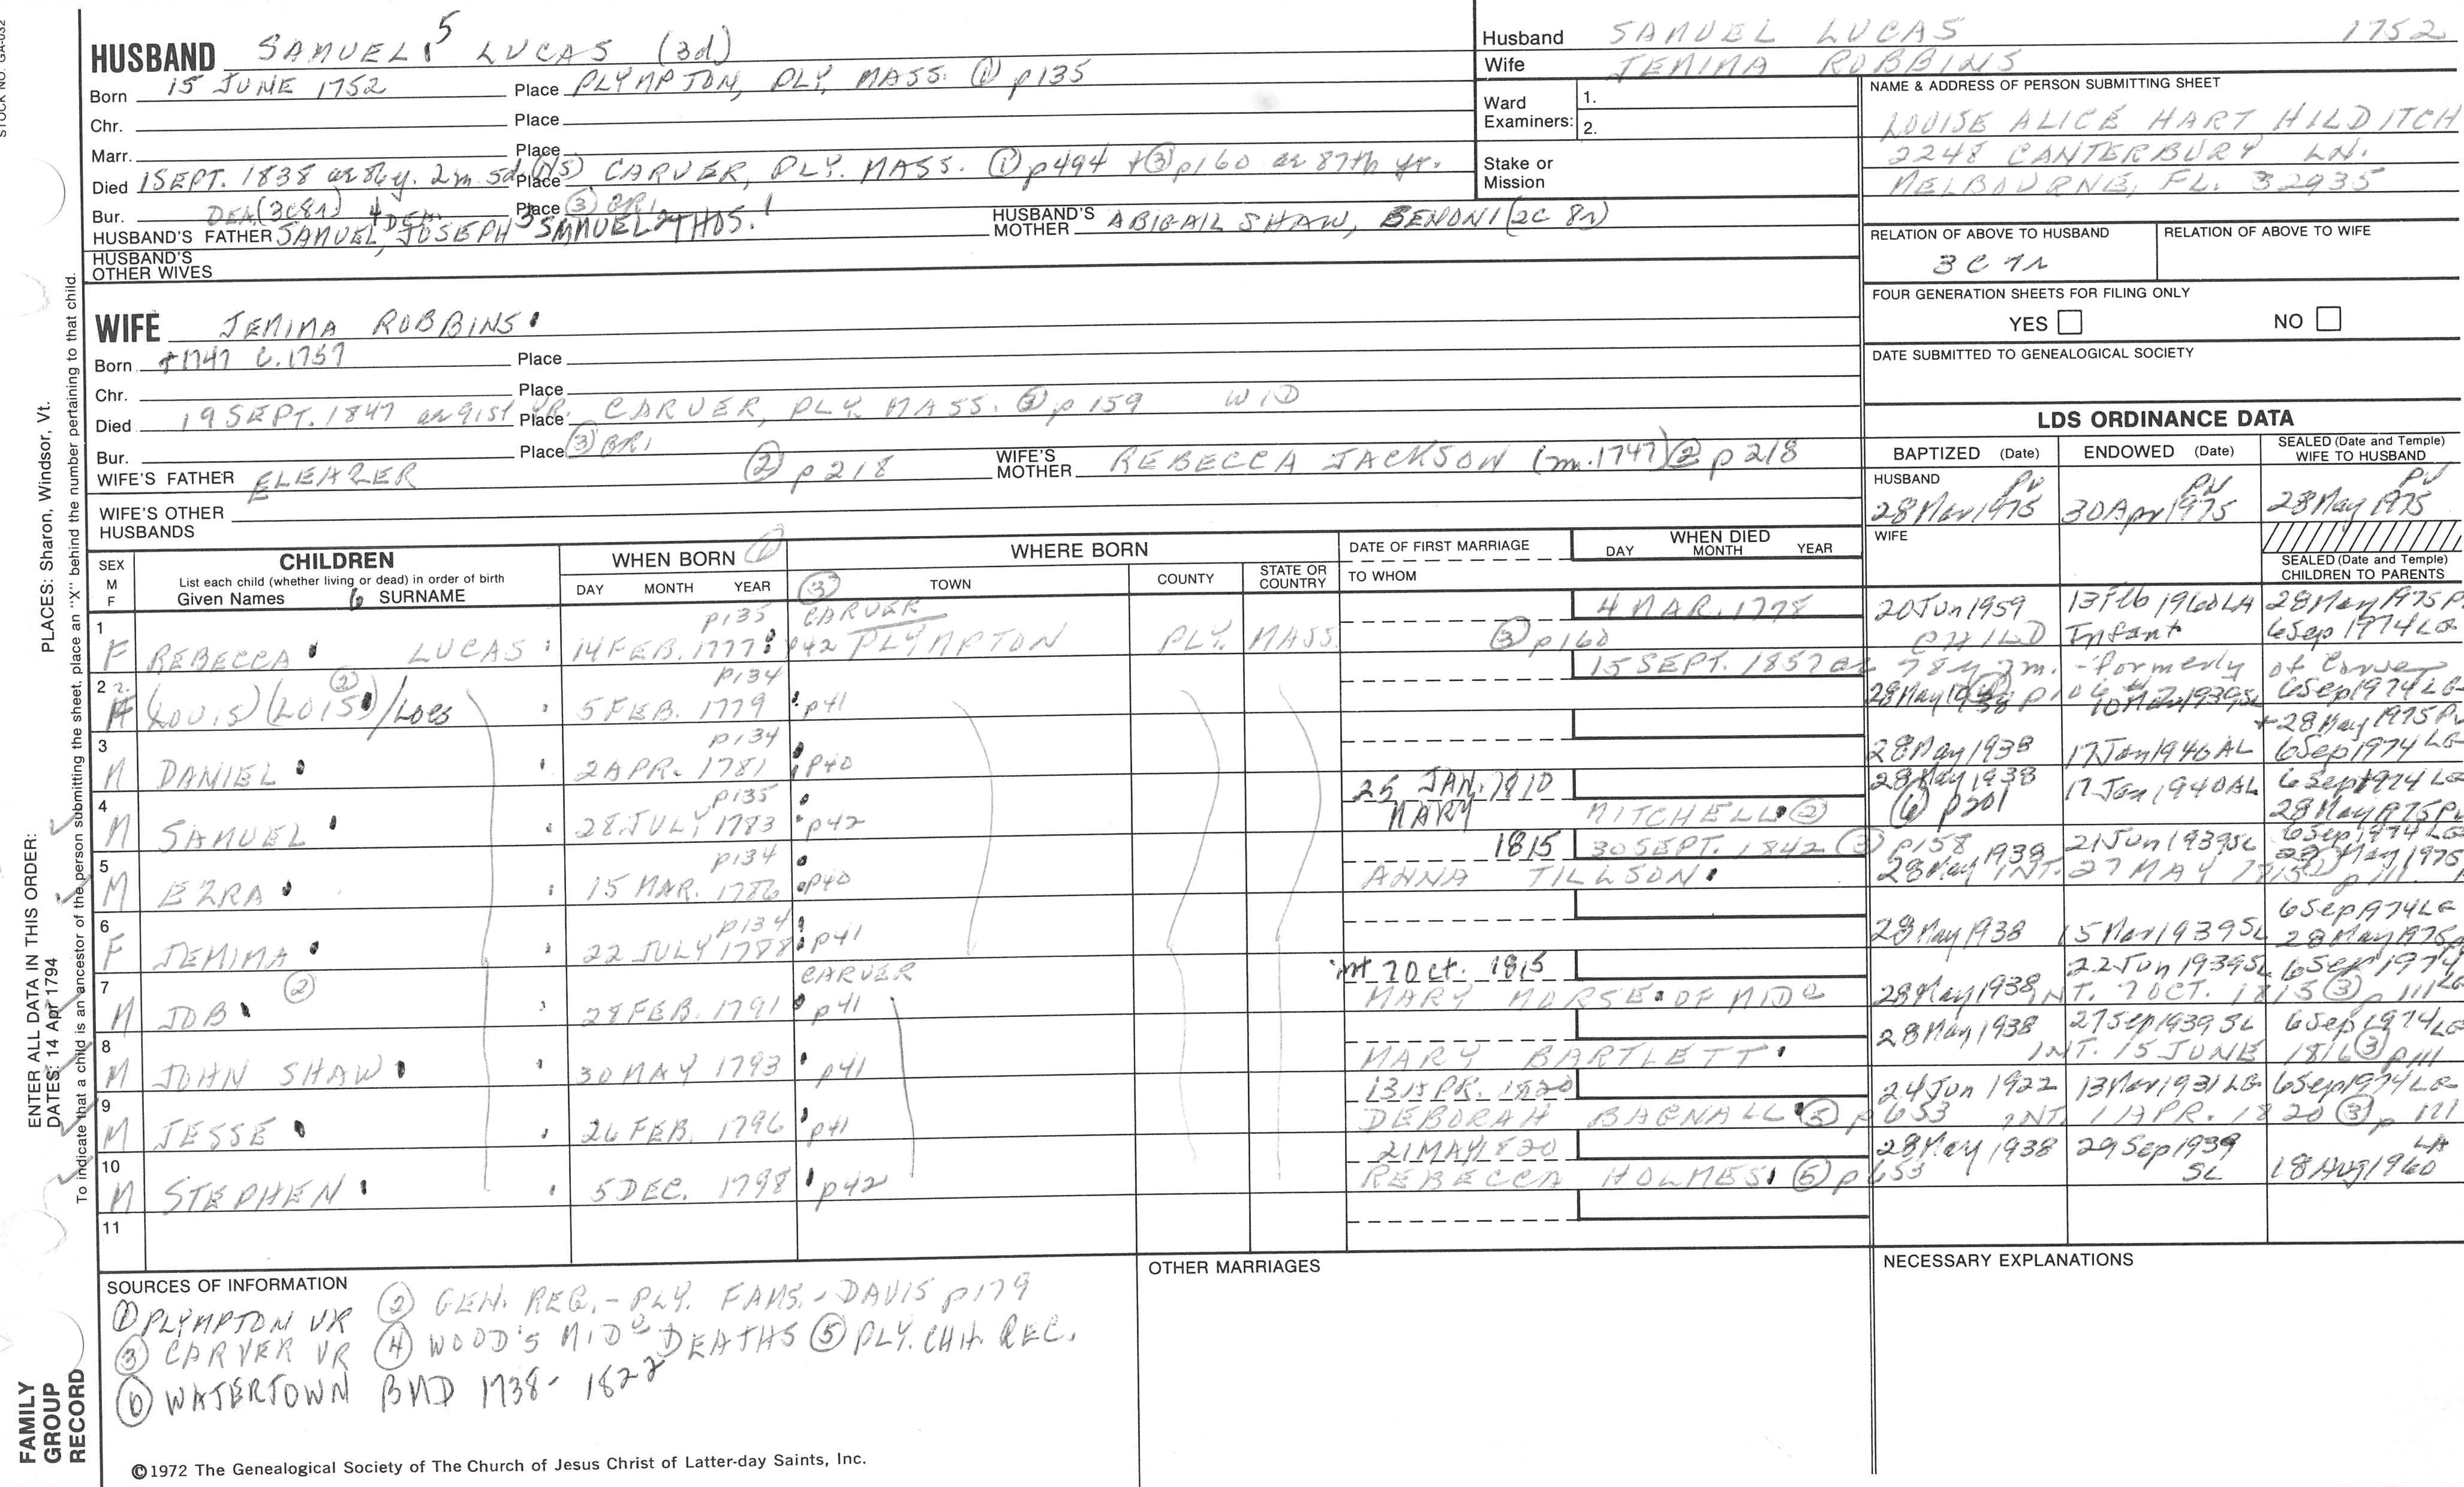 STOCK NO. GA-032
HUSBAND SAMUEL 5 LUCAS (3d)
Born 15 JUNE 1752 Place PLYMPTON, PLY. MASS. ① p135
Chr. Place
Marr. Place
Died 1 SEPT. 1838 ae 86y. 2m. 5d. (NS) Place CARVER, PLY. MASS. ① p494 + ③ p160 ae 87th yr.
Bur. Place ③ GR1
DEA. (3C8r) 4 DEA.
HUSBAND'S FATHER SAMUEL, JOSEPH 3 SAMUEL 2 THOS. 1 HUSBAND'S MOTHER ABIGAIL SHAW, BENONI (2C 8r)
HUSBAND'S OTHER WIVES
Husband SAMUEL LUCAS 1752
Wife JEMIMA ROBBINS
Ward Examiners: 1. 2.
Stake or Mission
NAME & ADDRESS OF PERSON SUBMITTING SHEET
LOUISE ALICE HART HILDITCH
2248 CANTERBURY LN.
MELBOURNE, FL. 32935
RELATION OF ABOVE TO HUSBAND RELATION OF ABOVE TO WIFE
3C7r
FOUR GENERATION SHEETS FOR FILING ONLY
YES NO
DATE SUBMITTED TO GENEALOGICAL SOCIETY
WIFE JEMIMA ROBBINS
Born 1747 C.1757 Place
Chr. Place
Died 19 SEPT. 1847 ae 91st YR. Place CARVER, PLY. MASS. ③ p159 WID
Bur. Place ③ GR1
WIFE'S FATHER ELEAZER ② p218 WIFE'S MOTHER REBECCA JACKSON (m.1747) ② p218
WIFE'S OTHER HUSBANDS
LDS ORDINANCE DATA
BAPTIZED (Date) ENDOWED (Date) SEALED (Date and Temple) WIFE TO HUSBAND
HUSBAND PV PV PV
28 Mar 1975 30 Apr 1975 28 May 1975
WIFE
SEALED (Date and Temple) CHILDREN TO PARENTS
SEX M F CHILDREN WHEN BORN ① WHERE BORN DATE OF FIRST MARRIAGE WHEN DIED
List each child (whether living or dead) in order of birth
Given Names 6 SURNAME DAY MONTH YEAR ③ TOWN COUNTY STATE OR COUNTRY TO WHOM DAY MONTH YEAR
1 p135 CARVER 4 MAR. 1778 20 Jun 1959 13 Feb 1960 LA 28 May 1975 P
F REBECCA LUCAS 14 FEB. 1777 p42 PLYMPTON PLY. MASS. ③ p160 CHILD Infant 6 Sep 1974 LG
2 p134 15 SEPT. 1857 ae 78y 7m. - formerly of Carver
F (LOUIS) (LOIS ②) / Loes 5 FEB. 1779 p41 28 May 1938 ④ p106 10 1939 SL 6 Sep 1974 LG
+ 28 May 1975 PV
3 p134
M DANIEL 2 APR. 1781 p40 28 May 1938 17 Jan 1940 AL 6 Sep 1974 LG
4 p135 25 JAN. 1810 28 May 1938 17 Jan 1940 AL 6 Sep 1974 LG
M SAMUEL 28 JULY 1783 p42 MARY MITCHELL ② ⑥ p201 28 May 1975 PV
5 p134 1815 30 SEPT. 1842 ③ p158 21 Jun 1939 SL 6 Sep 1974 LG
M EZRA 15 MAR. 1786 p40 ANNA TILLSON 28 May 1938 INT. 27 MAY 1815 p111
28 May 1975
6 p134 6 Sep 1974 LG
F JEMIMA 22 JULY 1788 p41 28 May 1938 15 Mar 1939 SL 28 May 1975
7 ② CARVER int 7 Oct. 1815 22 Jun 1939 SL 6 Sep 1974
M JOB 28 FEB. 1791 p41 MARY MORSE OF MIDO 28 May 1938 INT. 7 OCT. 1815 ③ p111 LG
8 28 May 1938 27 Sep 1939 SL 6 Sep 1974 LG
M JOHN SHAW 30 MAY 1793 p41 MARY BARTLETT INT. 15 JUNE 1816 ③ p111
9 13 APR. 1820 24 Jun 1922 13 Mar 1931 LG 6 Sep 1974 LG
M JESSE 26 FEB. 1796 p41 DEBORAH BAGNALL ⑤ p653 INT. 1 APR. 1820 ③ p111
10 21 MAY 1820 28 May 1938 29 Sep 1939 SL 18 Aug 1960 LA
M STEPHEN 5 DEC. 1798 p42 REBECCA HOLMES ⑤ p653
11
SOURCES OF INFORMATION
① PLYMPTON VR ② GEN. REG. - PLY. FAMS. - DAVIS p179
③ CARVER VR ④ WOOD'S MIDO DEATHS ⑤ PLY. CHH. REC.
⑥ WATERTOWN BMD 1738-1822
OTHER MARRIAGES
NECESSARY EXPLANATIONS
©1972 The Genealogical Society of The Church of Jesus Christ of Latter-day Saints, Inc.
FAMILY GROUP RECORD
ENTER ALL DATA IN THIS ORDER:
DATES: 14 Apr 1794
PLACES: Sharon, Windsor, Vt.
To indicate that a child is an ancestor of the person submitting the sheet, place an "X" behind the number pertaining to that child.